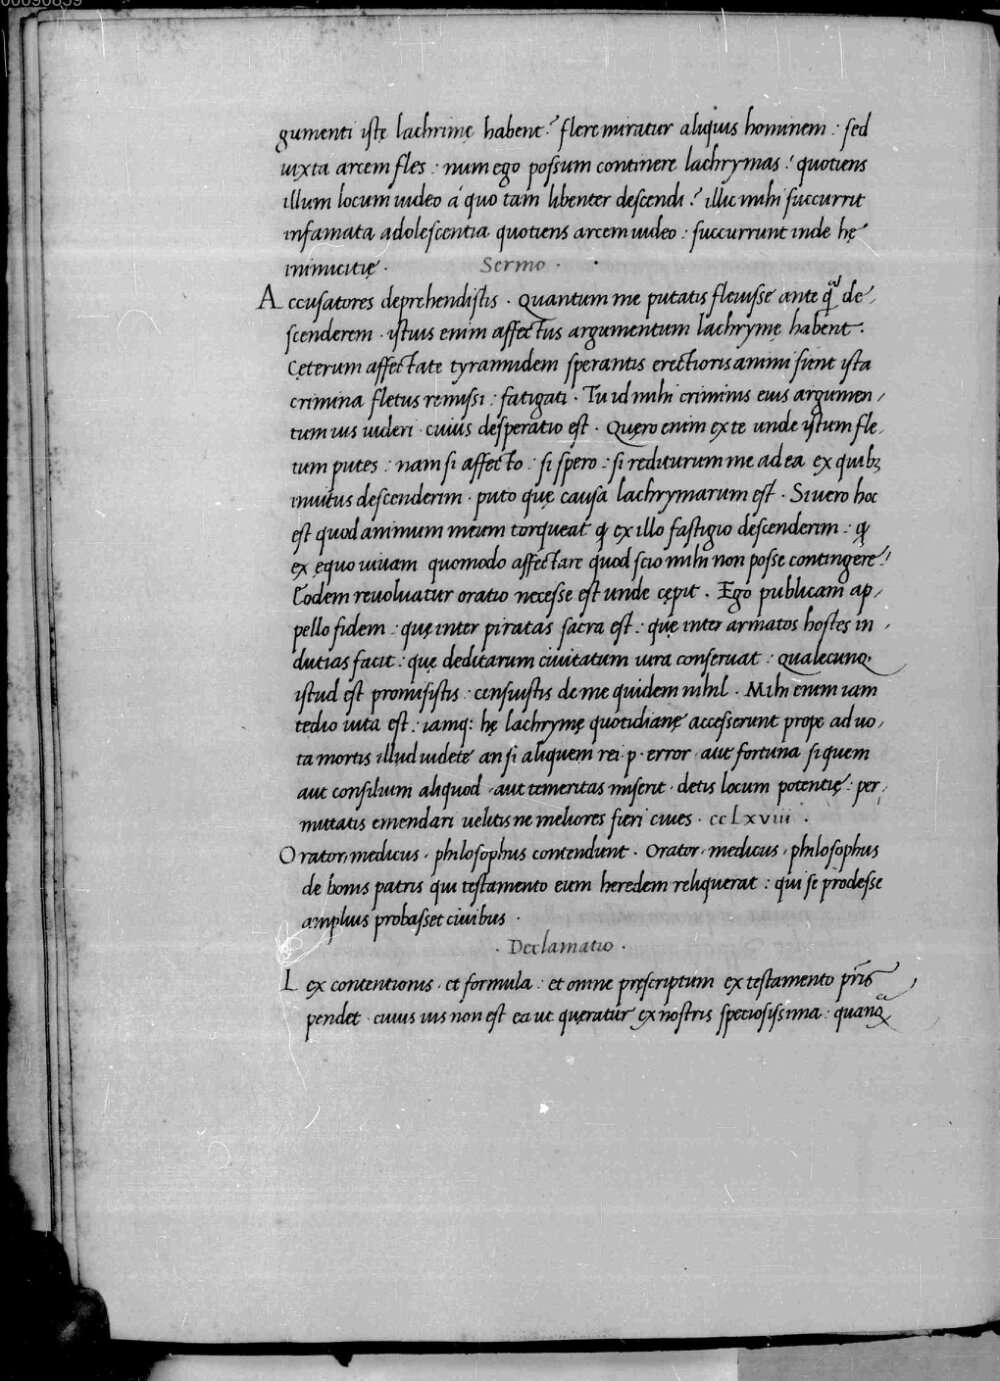 00090859
gumenti istę lachrimę habent? flere miratur aliquis hominem: sed
iuxta arcem fles: num ego possum continere lachrymas? quotiens
illum locum uideo á quo tam libenter descendi? illic mihi succurrit
infamata adolescentia quotiens arcem uideo: succurrunt inde hę
inimicitię.
Sermo.
Accusatores deprehendistis. Quantum me putatis fleuisse ante q̃ de,
scenderem. istius enim affectus argumentum lachrymę habent.
Cęterum affectate tyrannidem sperantis erectioris animi sient ista
crimina fletus remissi: fatigati. Tu id mihi criminis eius argumen,
tum uis uideri. cuius desperatio est. Quęro enim ex te unde istum fle,
tum putes: nam si affecto: si spero: si rediturum me ad ea ex quibꝫ
inuitus descenderim. puto quę causa lachrymarum est. Si uero hoc
est quod animum meum torqueat ꝙ ex illo fastigio descenderim: ꝙ
ex ęquo uiuam quomodo affectare quod scio mihi non posse contingere?
Eodem reuoluatur oratio necesse est unde cępit. Ego publicam ap,
pello fidem: quę inter piratas sacra est: quę inter armatos hostes in,
dutias facit: quę deditarum ciuitatum iura conseruat: qualecunq;
istud est promisistis: censuistis de me quidem nihil. Mihi enim iam
tedio uita est: iamq: hę lachrymę quotidianę accesserunt prope ad uo,
ta mortis illud uidete an si aliquem rei.p. error. aut fortuna si quem
aut consilium aliquod, aut temeritas miserit. detis locum potentię: per,
mutatis emendari uelitis ne meliores fieri ciues. ccLxviii.
Orator, medicus, philosophus contendunt. Orator, medicus, philosophus
de bonis patris qui testamento eum heredem reliquerat: qui se prodesse
amplius probasset ciuibus.
. Declamatio.
Lex contentionis. et formula: et omne pręscriptum ex testamento pr̃is
pendet. cuius uis non est ea ut queratur ex nostris speciosissima: quanq̃